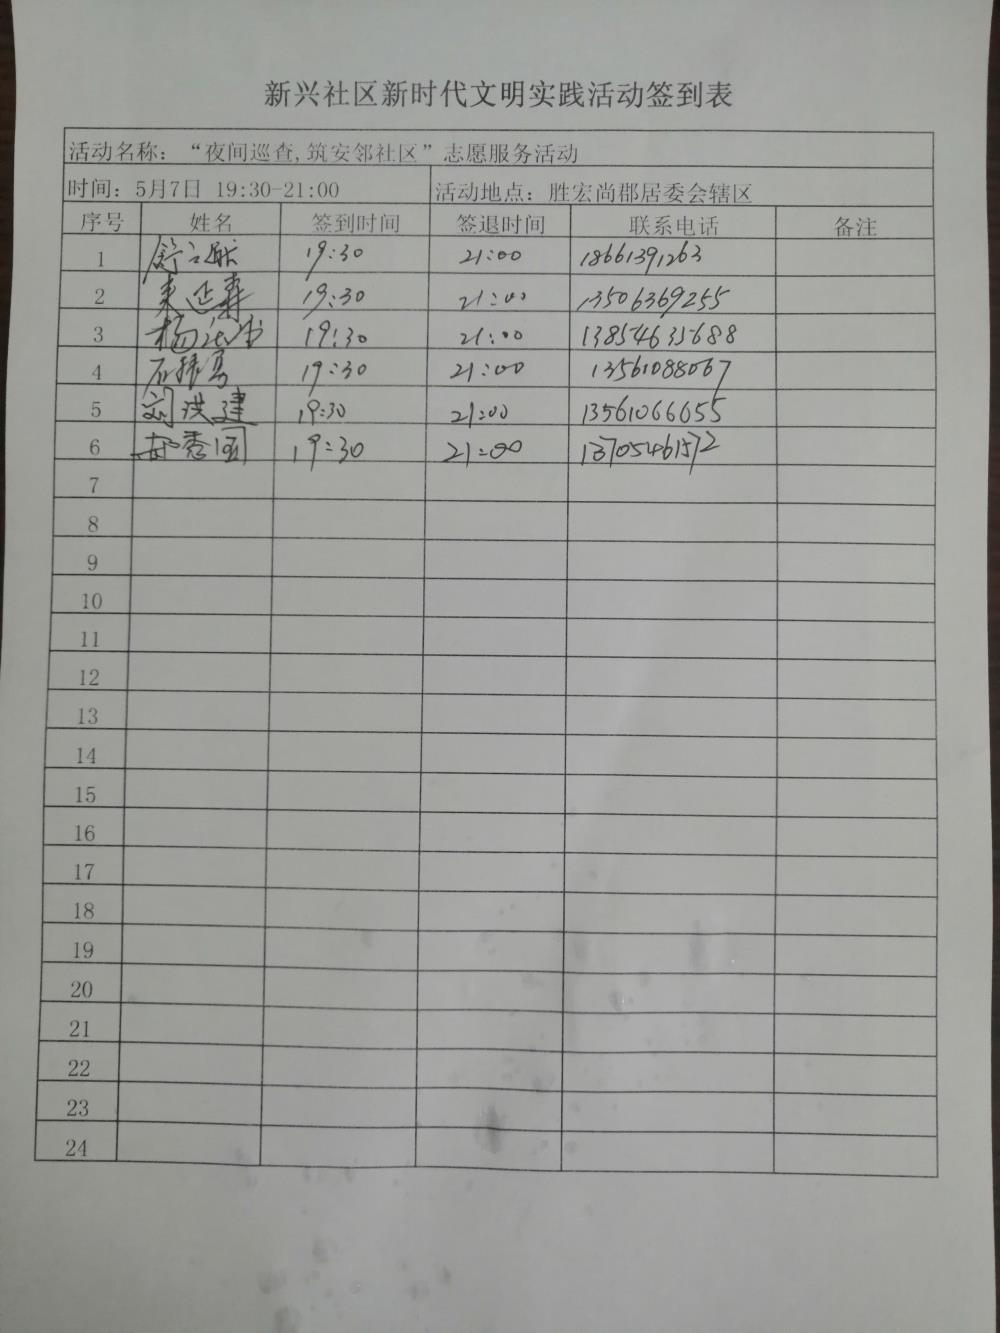 新兴社区新时代文明实践活动签到表
活动名称：“夜间巡查,筑安邻社区”志愿服务活动
时间：5月7日 19:30-21:00 活动地点：胜宏尚郡居委会辖区
序号 姓名 签到时间 签退时间 联系电话 备注
1 19:30 21:00 18661391263
2 19:30 21:00 13506369255
3 19:30 21:00 13854635688
4 石振勇 19:30 21:00 13561088067
5 刘洪建 19:30 21:00 13561066055
6 秀国 19:30 21:00 13705461572
7
8
9
10
11
12
13
14
15
16
17
18
19
20
21
22
23
24